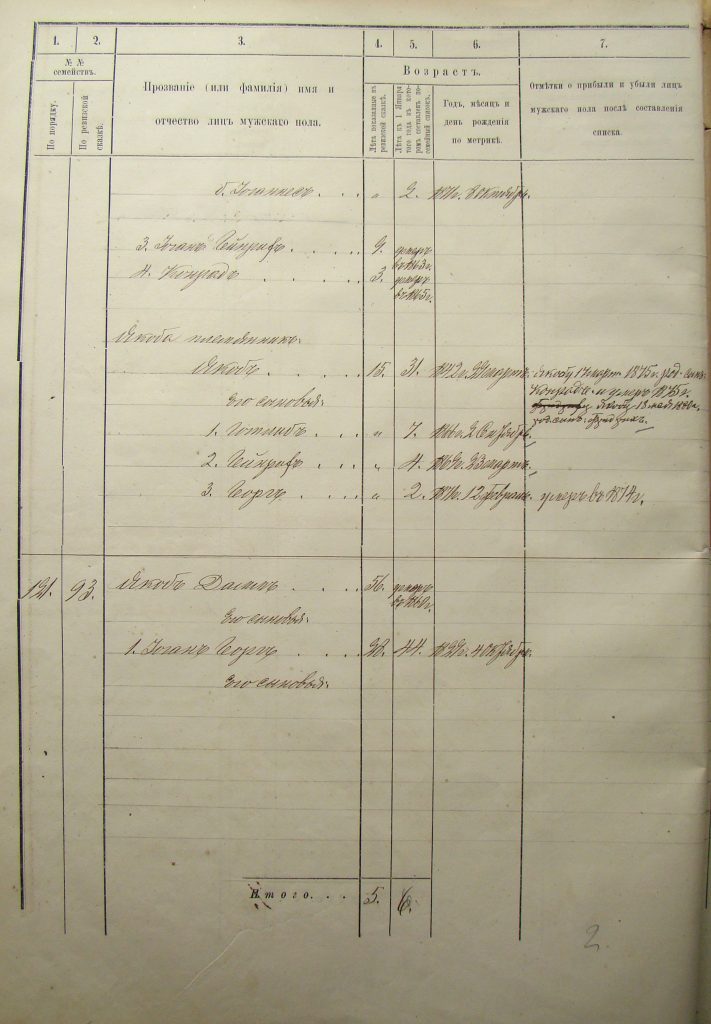 1. 2. 3. 4. 5. 6. 7.
№ № семействъ.
По порядку.
По ревизской сказкѣ.
Прозваніе (или фамилія) имя и
отчество лицъ мужскаго пола.
Возрастъ.
Лѣта показанные въ ревизской сказкѣ.
Лѣта къ 1 Января того года въ которомъ составленъ посемейный списокъ.
Годъ, мѣсяцъ и
день рожденія
по метрикѣ.
Отмѣтки о прибыли и убыли лицъ
мужскаго пола послѣ составленія
списка.
б. Іоганнесъ . . . „ 2. 1871г. 8 октября.
3. Іоганъ Гейнрихъ . . . . . 9. умеръ въ 1863г.
4. Конрадъ . . . . . . 3. умеръ въ 1865г.
Якоба племянникъ:
Якобъ . . . . . 15. 31. 1842г. 29 марта.
Якобу 17 март. 1875г. род. сынъ
Конрадъ и умеръ 1875г.
Якобу 18 мая 1880г.
род. сынъ Фридрихъ.
Его сыновья:
1. Готлибъ . . . . „ 7. 1866г. 26 ноября.
2. Гейнрихъ . . . . „ 4. 1869г. 23 марта.
3. Георгъ . . . . . „ 2. 1871г. 12 февраля. умеръ въ 1874г.
121. 93. Якобъ . . . . 56. умеръ въ 1860г.
Его сыновья:
1. Іоганъ Георгъ . . . . 28. 44. 1829г. 4 октября.
Его сыновья:
Итого. . . 5. 6.
2